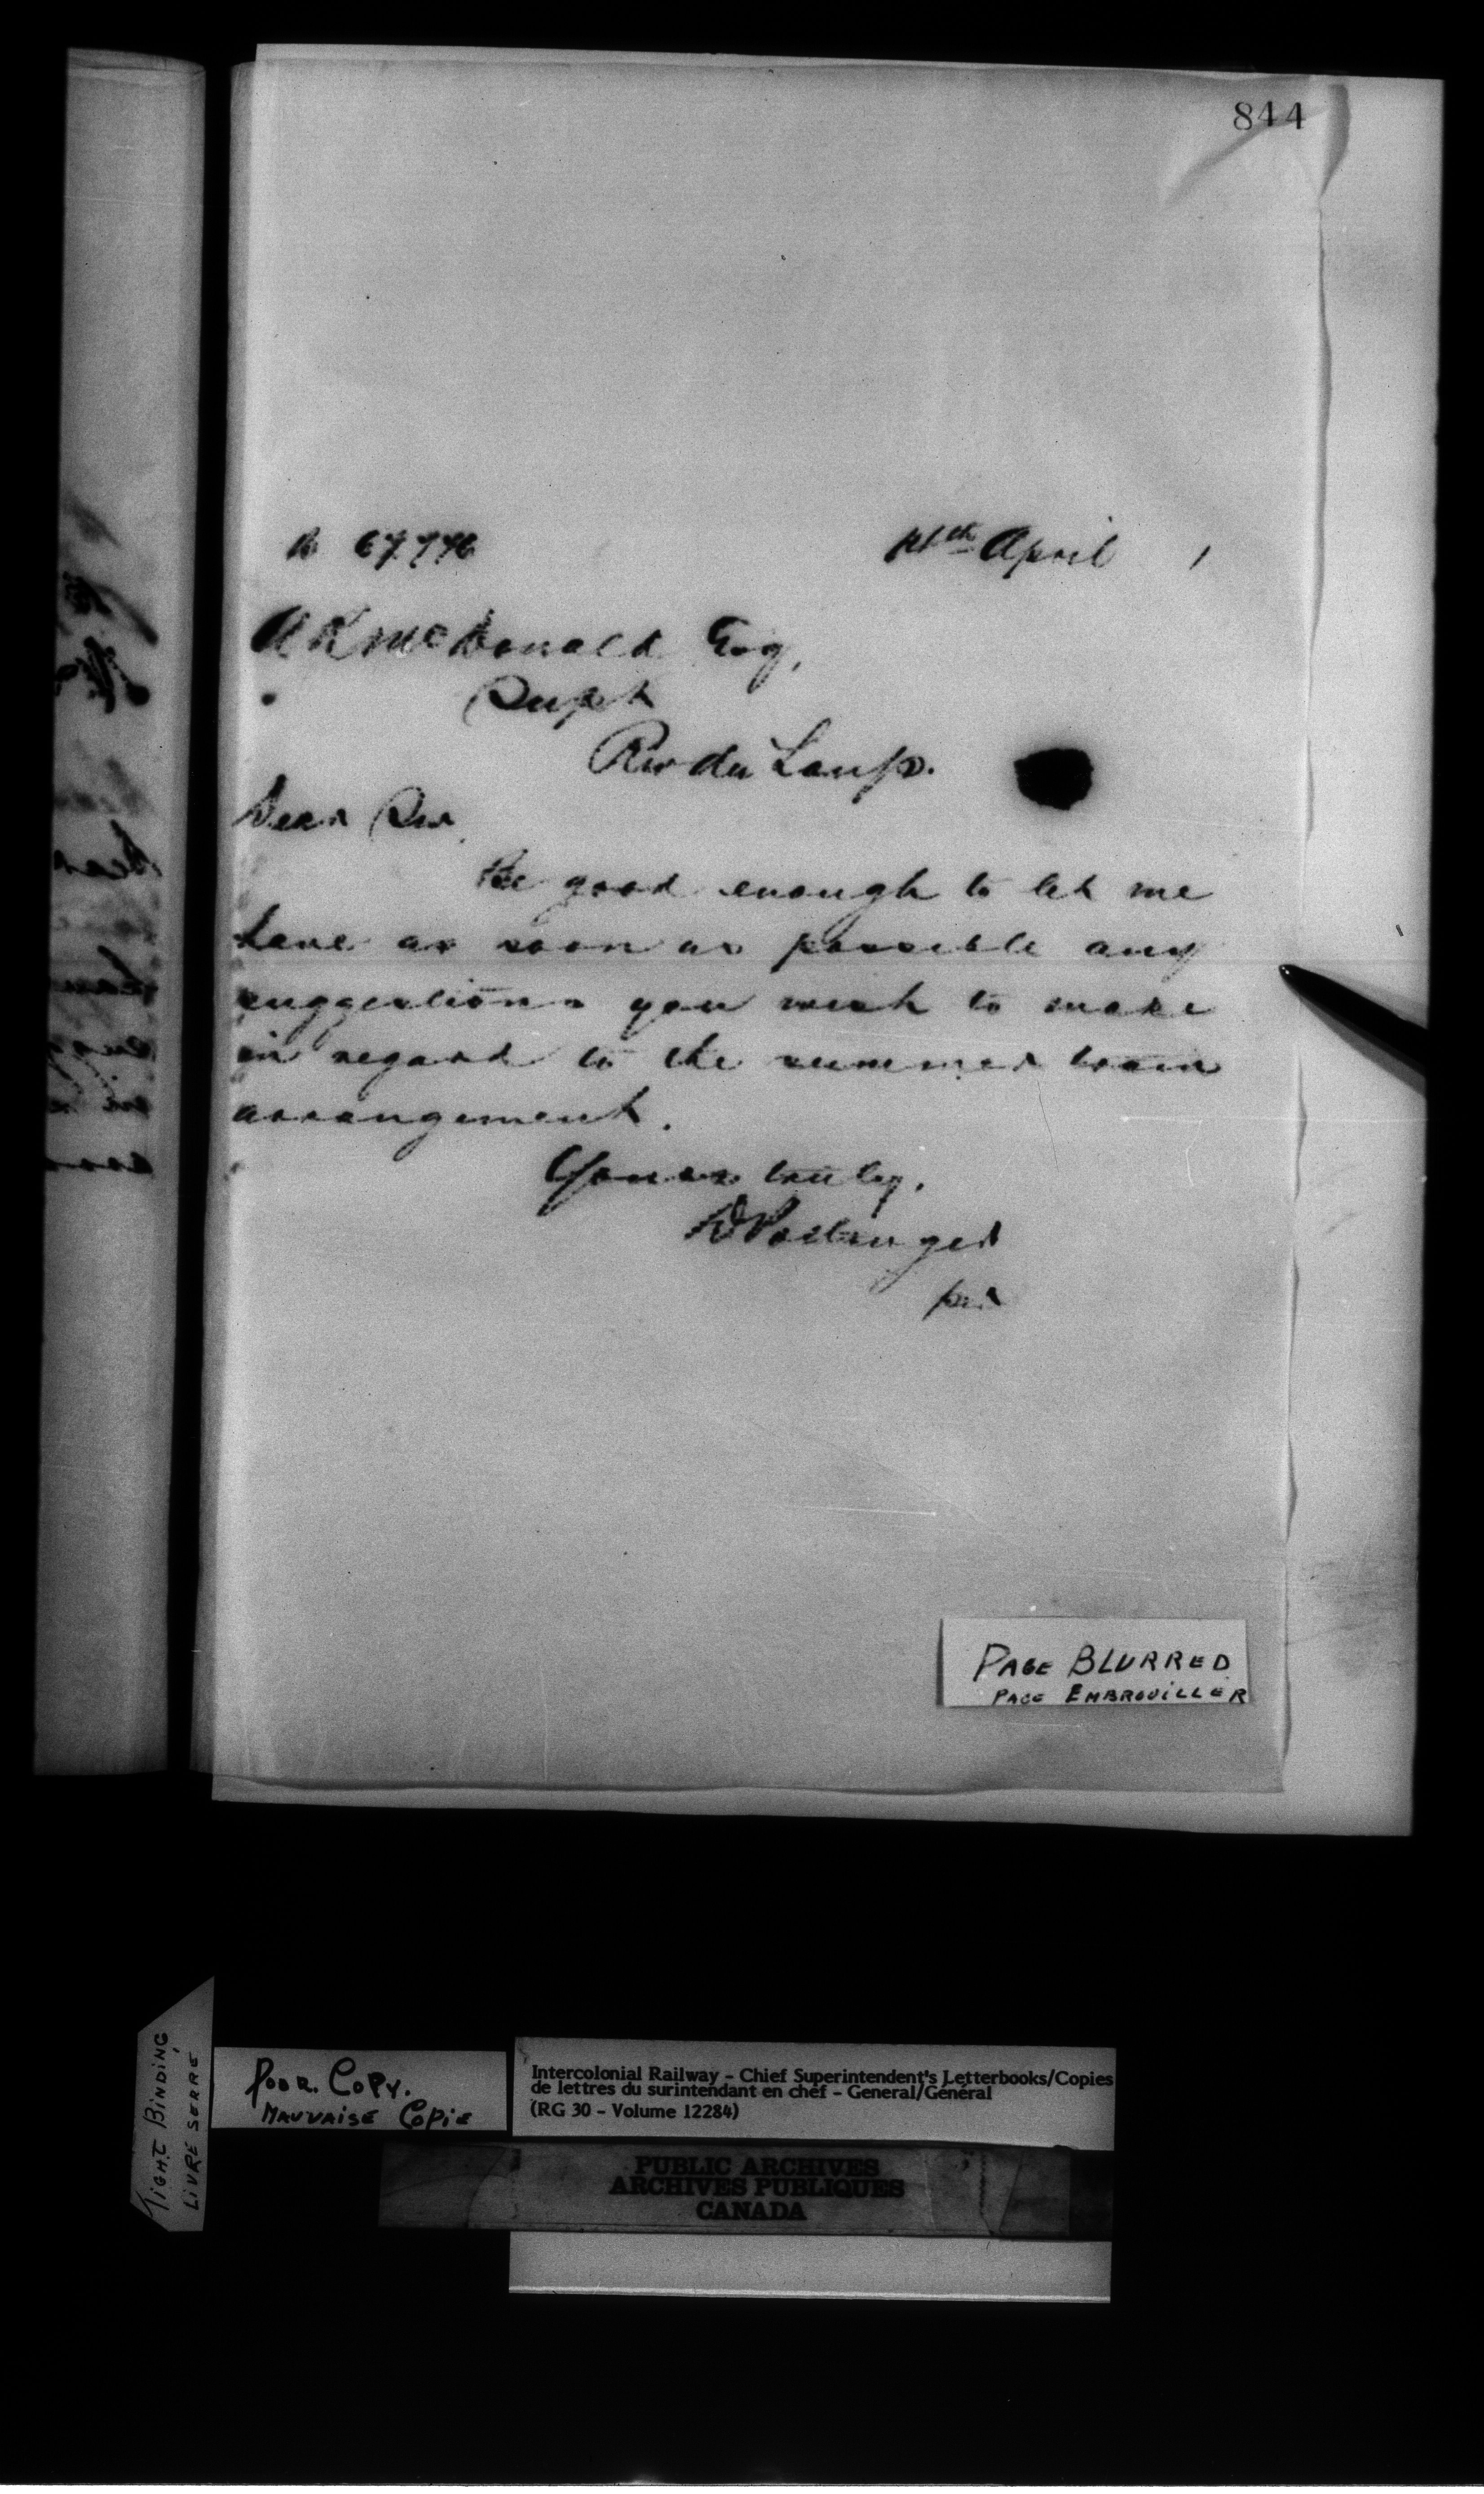 844
67776
14th April 1
A R McDonald Esq,
Supt
Riv du Loup.
Dear Sir,
Be good enough to let me
have as soon as possible any
suggestions you wish to make
in regard to the summer train
arrangement.
Yours truly,
D Pottinger
per
PAGE BLURRED
PAGE EMBROUILLER
TIGHT BINDING
LIVRE SERRE
POOR. COPY.
MAUVAISE COPIE
Intercolonial Railway - Chief Superintendent's Letterbooks/Copies
de lettres du surintendant en chef - General/Général
(RG 30 - Volume 12284)
PUBLIC ARCHIVES
ARCHIVES PUBLIQUES
CANADA